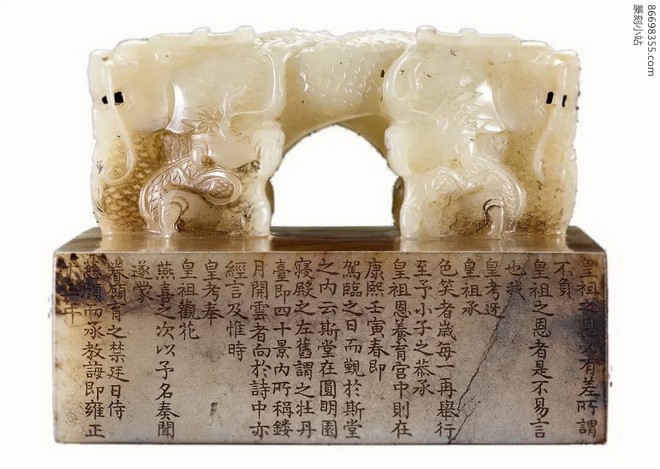 86698355.com
篆刻小站
皇祖之恩有差所謂
不負
皇祖之恩者是不易言
也我
皇考迓
皇祖承
色笑者歲每一再舉行
至予小子之恭承
皇祖恩養育宮中則在
康熙壬寅春即
駕臨之日而覲於斯堂
之内云斯堂在圓明園
寢殿之左舊謂之牡丹
臺即四十景内所稱鏤
月開雲者向於詩中亦
經言及惟時
皇考奉
皇祖觀花
燕喜之次以予名奏聞
遂蒙
眷顧育之禁廷日侍
慈顔而承教誨即雍正
十三年